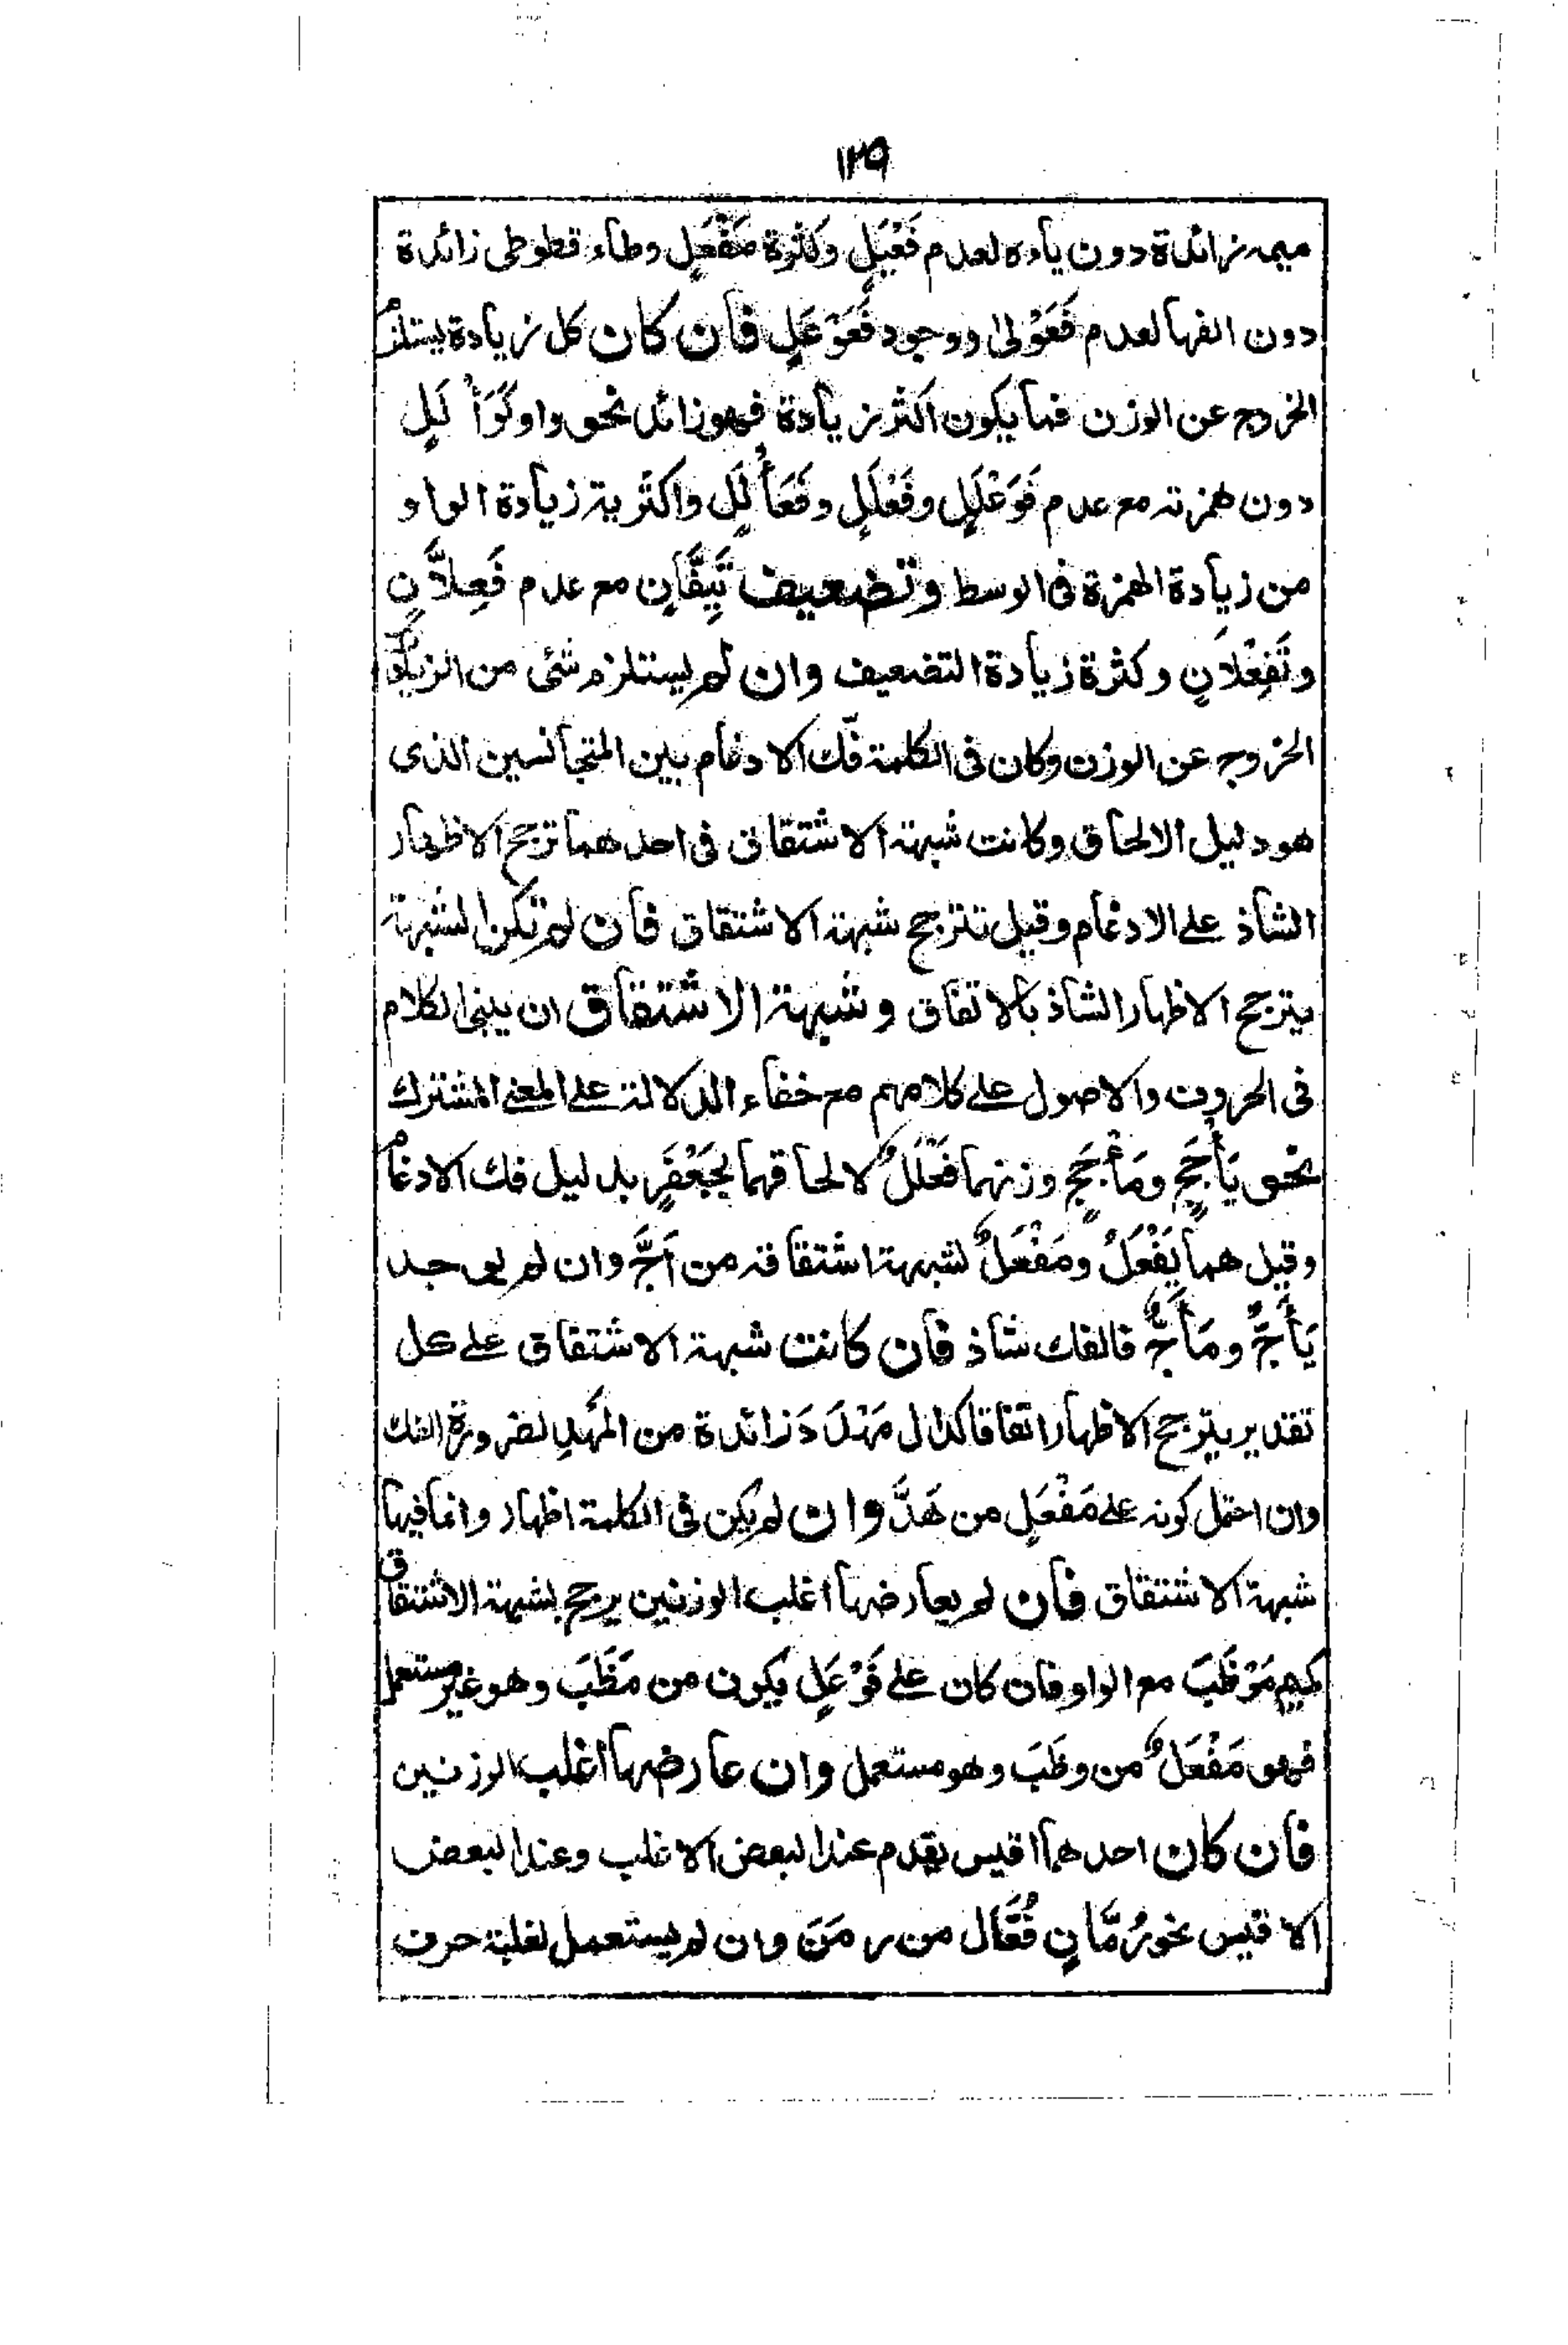 ١٢٩
ميمه زائدة دون ياءه لعدم فَعْيَلٍ وكثرة مَفْعَلٍ وطاء قطوطى زائدة
دون الفها لعدم فَعَوْلىٰ ووجود فَعَوْعَلٍ فان كان كل زيادة يستلزم
الخروج عن الوزن فما يكون اكثر زيادة فهو زائد نحو واو كَوَأْلَلٍ
دون همزته مع عدم فَوَعْلَلٍ وفَعْلَلٍ وفَعَأْلَلٍ واكثرية زيادة الواو
من زيادة الهمزة فى الوسط وتضعيف تَئِفَّانٍ مع عدم فَعِلَّانٍ
وتَفِعْلَانٍ وكثرة زيادة التضعيف وان لم يستلزم شئى من الزيادة
الخروج عن الوزن وكان فى الكلمة فك الادغام بين المتجانسين الذى
هو دليل الالحاق وكانت شبهة الاشتقاق فى احدهما ترجح الاظهار
الشاذ على الادغام وقيل تترجح شبهة الاشتقاق فان لم تكن الشبهة
يترجح الاظهار الشاذ بالاتفاق وشبهة الاشتقاق ان يبنى الكلام
فى الحروف والاصول على كلامهم مع خفاء الدلالة على المعنى المشترك
نحو يَأْجَجٍ ومَأْجَجٍ وزنهما فَعْلَلٌ لالحاقهما بجَعْفَرٍ بدليل فك الادغام
وقيل هما يَفْعَلُ ومَفْعَلٌ لشبهة اشتقاقه من اَجَّ وان لم يوجد
يَأَجٌّ ومَأَجٌّ فالفك شاذ فان كانت شبهة الاشتقاق على كل
تقدير يترجح الاظهار اتفاقا كدال مَهْدَدَ زائدة من المَهْدِ لضرورة الفك
وان احتمل كونه على مَفْعَلٍ من هَدَّ وان لم يكن فى الكلمة اظهار وانما فيها
شبهة الاشتقاق فان لم يعارضها اغلب الوزنين يرجح بشبهة الاشتقاق
كميم مَوْظَبَ مع الواو فان كان على فَوْعَلٍ يكون من مَظَبَ وهو غير مستعمل
فهو مَفْعَلٌ من وظَبَ وهو مستعمل وان عارضها اغلب الوزنين
فان كان احدهما اقيس يقدم عند البعض الاغلب وعند البعض
الاقيس نحو رُمَّانٍ فُعَّال من رمَنَ وان لم يستعمل لغلبة حرف